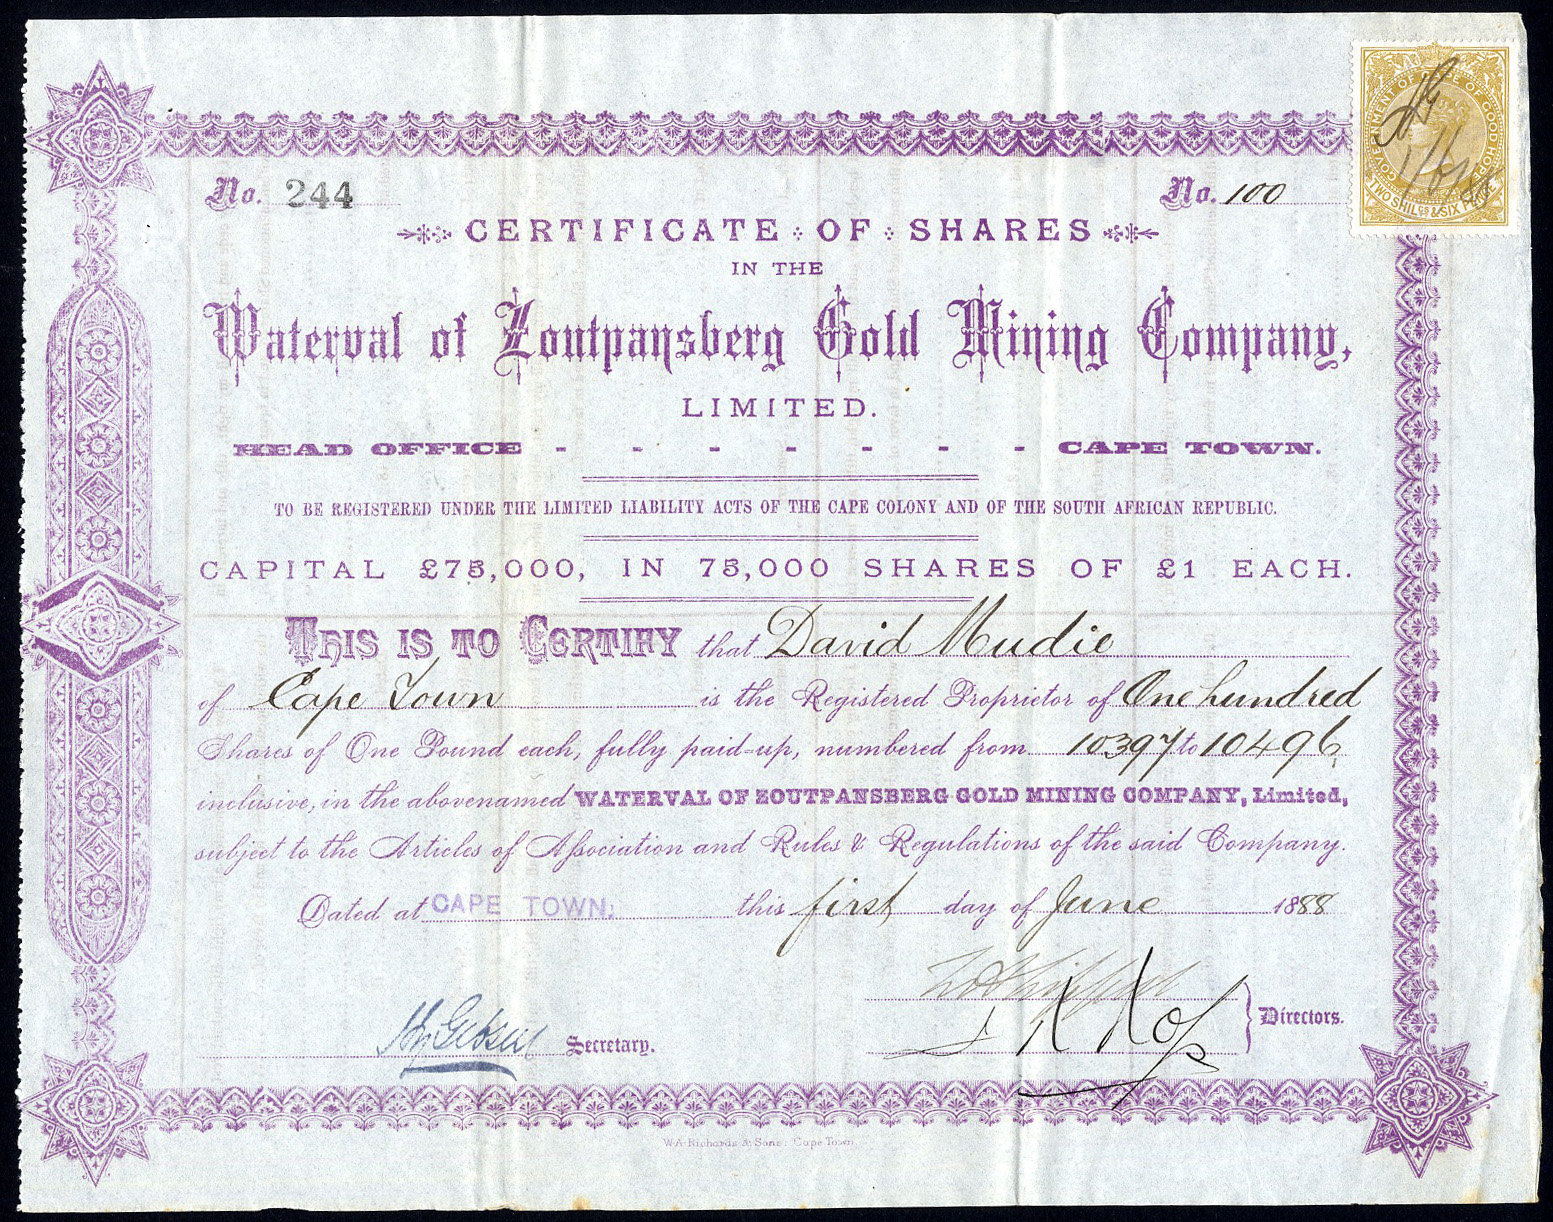 No. 244
No. 100
GOVERNMENT OF CAPE OF GOOD HOPE
TWO SHILGS & SIX PENCE
CERTIFICATE OF SHARES
IN THE
Waterval of Zoutpansberg Gold Mining Company,
LIMITED.
HEAD OFFICE - - - - - - - CAPE TOWN.
TO BE REGISTERED UNDER THE LIMITED LIABILITY ACTS OF THE CAPE COLONY AND OF THE SOUTH AFRICAN REPUBLIC.
CAPITAL £75,000, IN 75,000 SHARES OF £1 EACH.
THIS IS TO CERTIFY that David Mudie
of Cape Town is the Registered Proprietor of One hundred
Shares of One Pound each, fully paid-up, numbered from 10397 to 10496
inclusive, in the abovenamed WATERVAL OF ZOUTPANSBERG GOLD MINING COMPANY, Limited,
subject to the Articles of Association and Rules & Regulations of the said Company.
Dated at CAPE TOWN. this first day of June 1888
Directors.
Secretary.
W. A. Richards & Sons, Cape Town